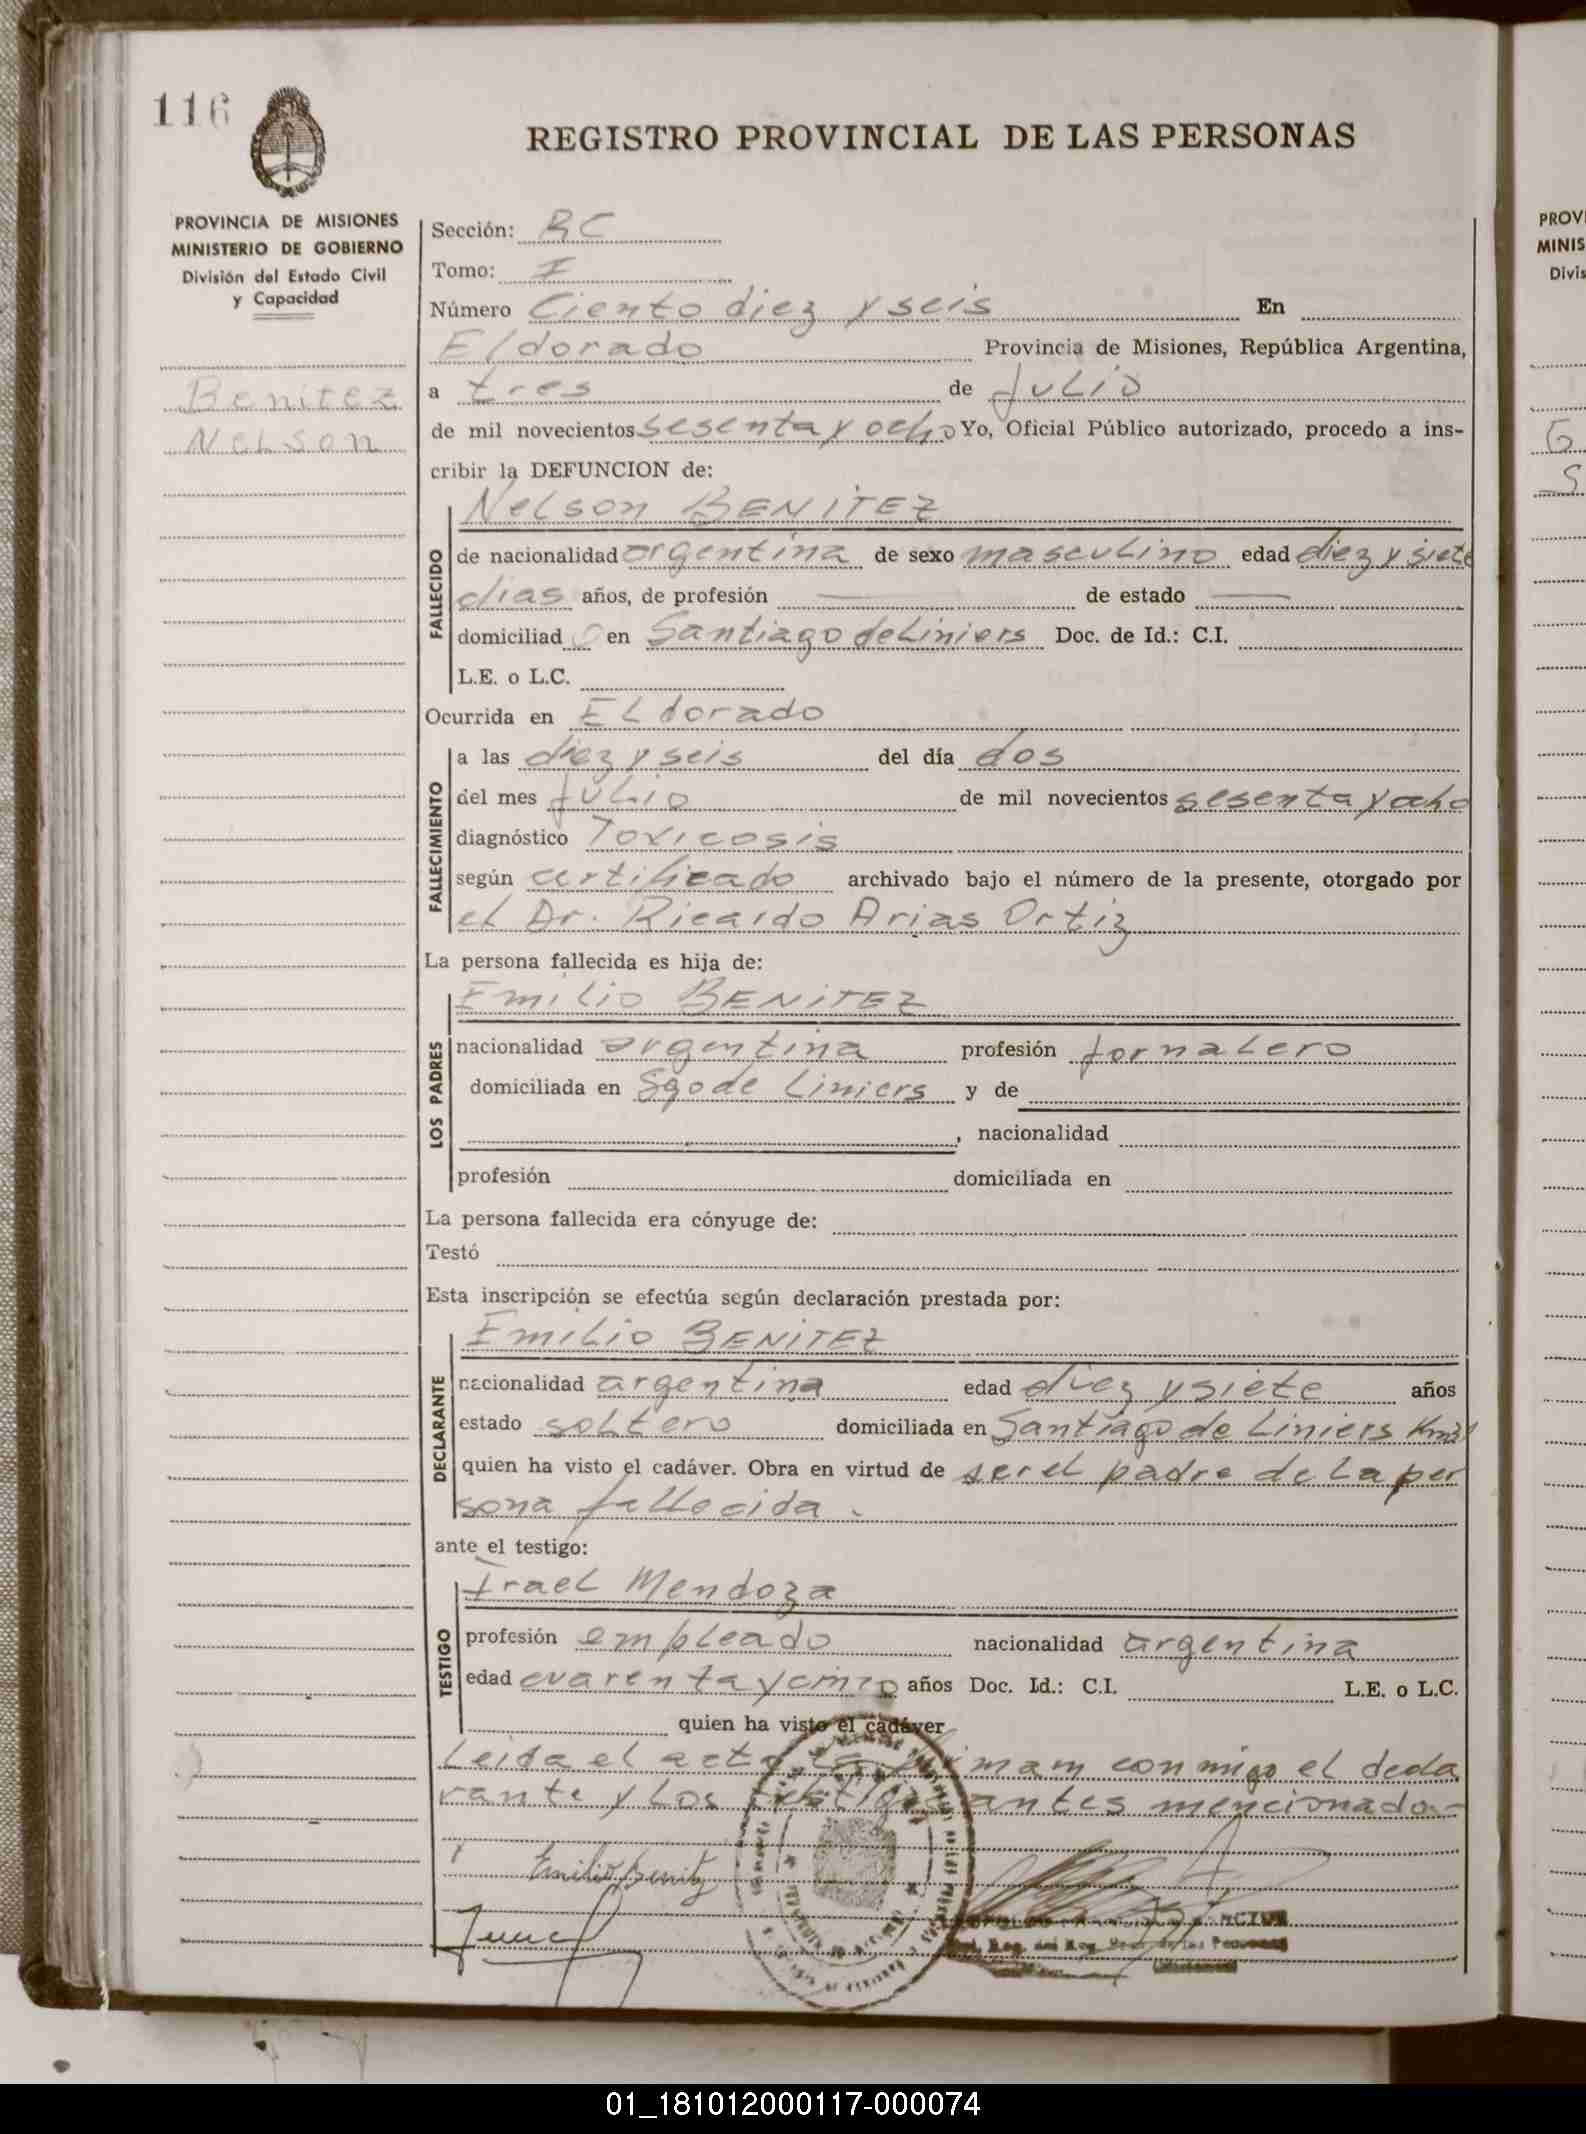 116
REGISTRO PROVINCIAL DE LAS PERSONAS
PROVINCIA DE MISIONES
MINISTERIO DE GOBIERNO
División del Estado Civil
y Capacidad
Benitez
Nelson
Sección: RC
Tomo: I
Número Ciento diez y seis En
Eldorado Provincia de Misiones, República Argentina,
a tres de Julio
de mil novecientos sesenta y ocho Yo, Oficial Público autorizado, procedo a ins-
cribir la DEFUNCION de:
Nelson BENITEZ
FALLECIDO
de nacionalidad argentina de sexo masculino edad diez y siete
dias años, de profesión — de estado —
domiciliad o en Santiago de Liniers Doc. de Id.: C.I.
L.E. o L.C.
Ocurrida en ELdorado
FALLECIMIENTO
a las diez y seis del día dos
del mes Julio de mil novecientos sesenta y ocho
diagnóstico Toxicosis
según certificado archivado bajo el número de la presente, otorgado por
el Dr. Ricardo Arias Ortiz
La persona fallecida es hija de:
Emilio BENITEZ
LOS PADRES
nacionalidad argentina profesión Jornalero
domiciliada en Sgo de Liniers y de
, nacionalidad
profesión domiciliada en
La persona fallecida era cónyuge de:
Testó
Esta inscripción se efectúa según declaración prestada por:
Emilio BENITEZ
DECLARANTE
nacionalidad argentina edad diez y siete años
estado soltero domiciliada en Santiago de Liniers Km
quien ha visto el cadáver. Obra en virtud de ser el padre de la per
sona fallecida.
ante el testigo:
Irael Mendoza
TESTIGO
profesión empleado nacionalidad argentina
edad cuarenta y cinco años Doc. Id.: C.I. L.E. o L.C.
quien ha visto el cadáver
Leida el acta la firman conmigo el decla
rante y los testigos antes mencionados
Emilio Benitz
PROV
MINIS
Divis
G
S
01_181012000117-000074